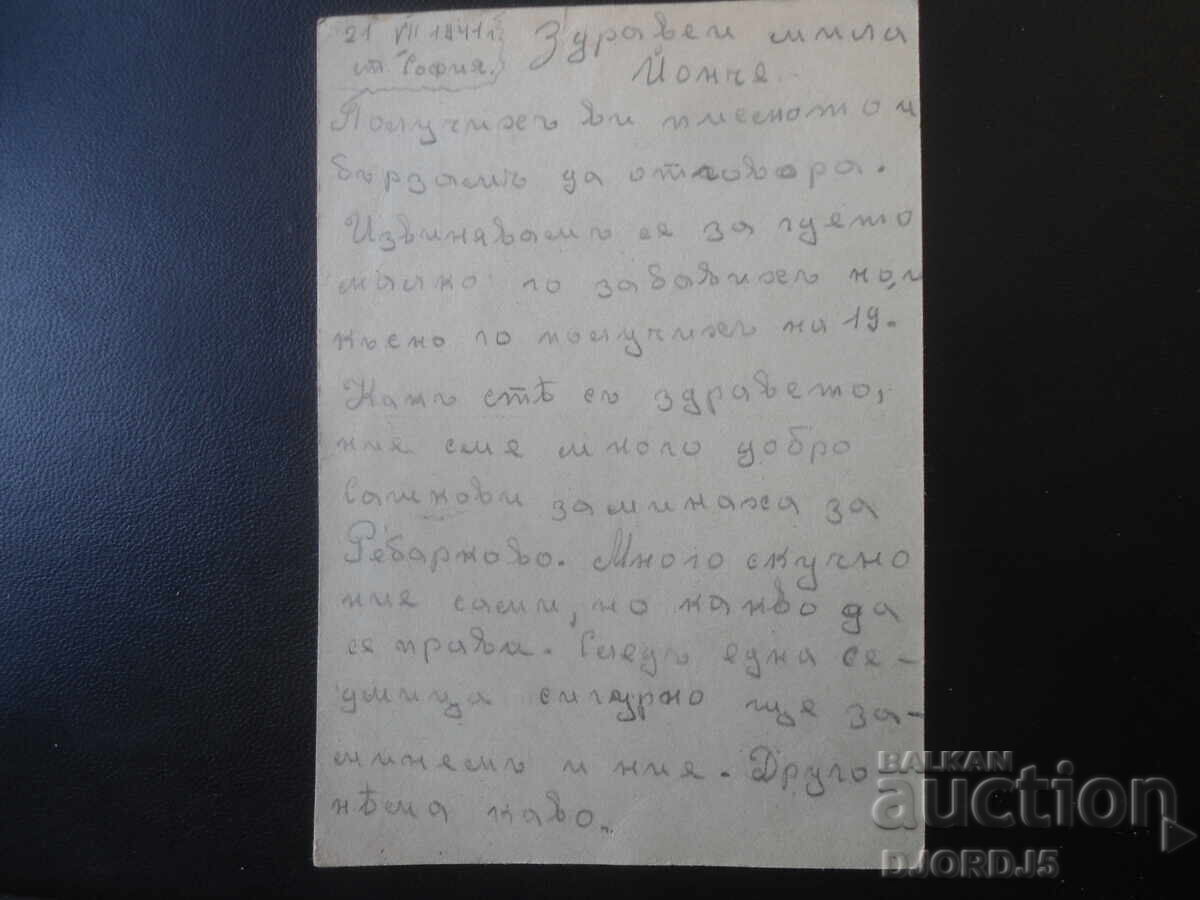 21 VII 1941 г. Здравей мила
ст. София. Йонче.
Получихъ ви писмото и
бързамъ да отговоря.
Извинявамъ се за гдето
малко го забавихъ но,
късно го получихъ на 19.
Какъ стѣ съ здравето,
ние сме много добре
Сашкови заминаха за
Ребарково. Много скучно
ние сами, но какво да
се прави. Следъ една се-
дмица сигурно ще за-
минемъ и ние. Друго
нѣма каво.
BALKAN
auction
DJORDJ5